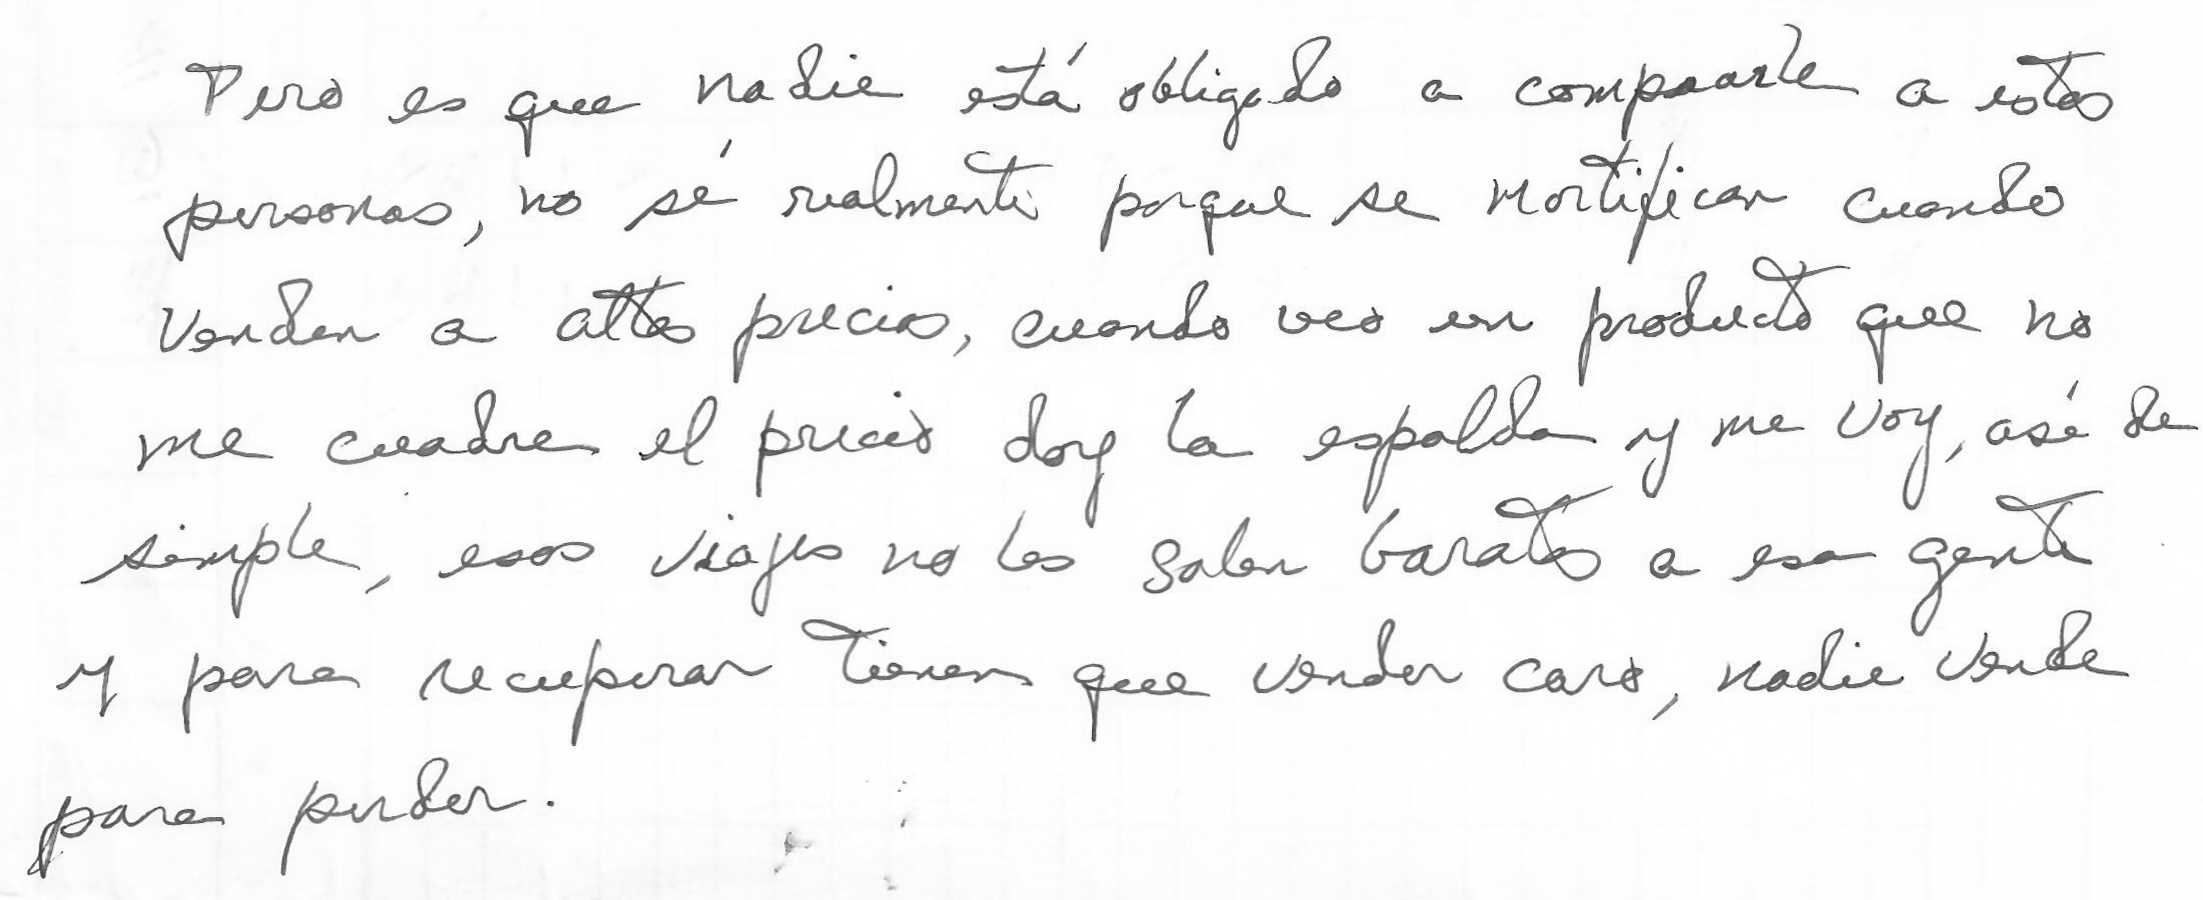 Pero es que nadie está obligado a comprarle a estas
personas, no sé realmente porque se mortifican cuando
venden a altos precios, cuando veo un producto que no
me cuadre el precio doy la espalda y me voy, así de
simple, esos viajes no les salen baratos a esa gente
y para recuperar tienen que vender caro, nadie vende
para perder.